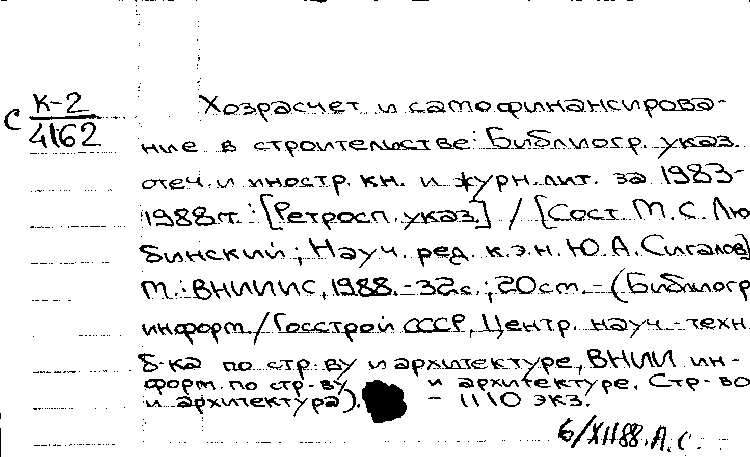 С К-2
4162
Хозрасчет и самофинансирова-
ние в строительстве: Библиогр. указ.
отеч. и иностр. кн. и журн. лит. за 1983-
1988гг. : [Ретросп. указ.] / [Сост. М. С. Лю
бинский ; Науч. ред. к.э.н. Ю. А. Сигалов]
М. : ВНИИИС, 1988. - 32с. ; 20 см. - (Библиогр
информ. / Госстрой СССР, Центр. науч.-техн.
б-ка по стр-ву и архитектуре, ВНИИ ин-
форм. по стр-ву и архитектуре. Стр-во
и архитектура). - 1110 экз.
6/XII88. А. С.